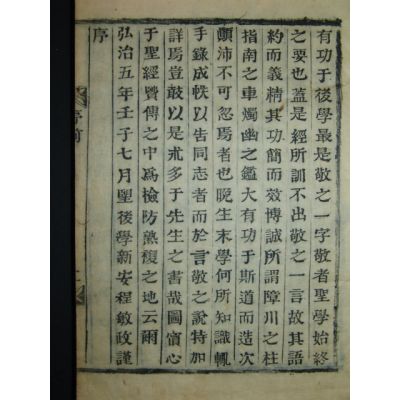 有功于後學最是敬之一字敬者聖學始終
之要也蓋是經所訓不出敬之一言故其語
約而義精其功簡而效博誠所謂障川之柱
指南之車燭幽之鑑大有功于斯道而造次
顛沛不可忽焉者也晩生末學何所知識輒
手錄成帙以告同志者而於言敬之說特加
詳焉豈敢以是求多于先生之書哉圖寘心
于聖經賢傳之中爲檢防熟復之地云爾
弘治五年壬子七月朢後學新安程敏政謹
序